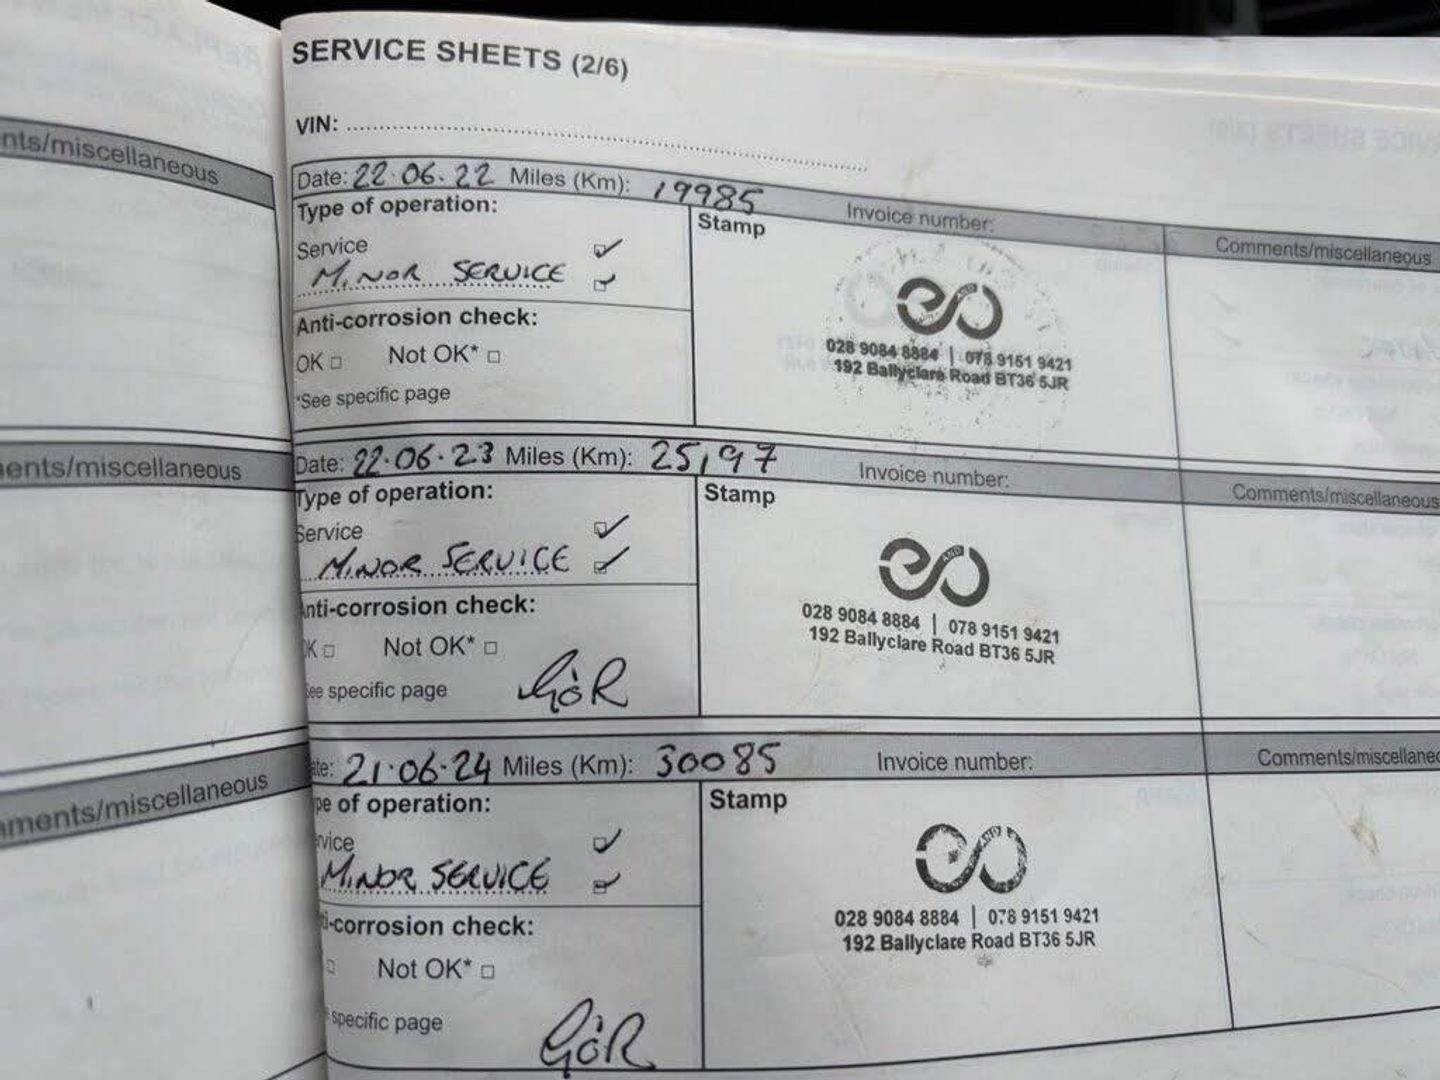 SERVICE SHEETS (2/6)
VIN:
nts/miscellaneous
Date: 22.06.22 Miles (Km): 19985 Invoice number: Comments/miscellaneous
Type of operation:
Stamp
Service
MINOR SERVICE
Anti-corrosion check:
OK Not OK*
*See specific page
AND
028 9084 8884 | 078 9151 9421
192 Ballyclare Road BT36 5JR
ents/miscellaneous
Date: 22.06.23 Miles (Km): 25,197 Invoice number: Comments/miscellaneous
Type of operation:
Stamp
Service
MINOR SERVICE
Anti-corrosion check:
OK Not OK*
See specific page
GOR
AND
028 9084 8884 | 078 9151 9421
192 Ballyclare Road BT36 5JR
mments/miscellaneous
ate: 21.06.24 Miles (Km): 30085 Invoice number: Comments/miscellaneo
pe of operation:
Stamp
rvice
MINOR SERVICE
ti-corrosion check:
Not OK*
specific page
GOR
AND
028 9084 8884 | 078 9151 9421
192 Ballyclare Road BT36 5JR